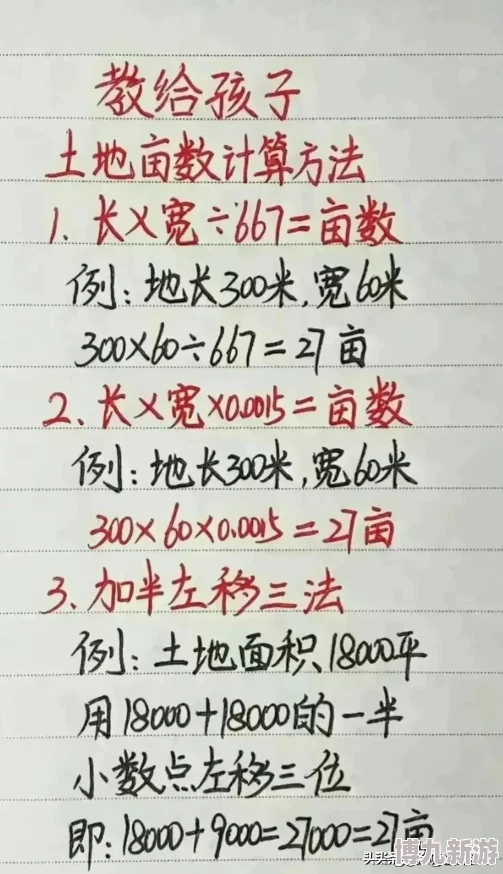 教给孩子
土地亩数计算方法
1. 长×宽÷667=亩数
例:地长300米,宽60米
300×60÷667=27亩
2、长×宽×0.0015=亩数
例:地长300米,宽60米
300×60×0.0015=27亩
3、加半左移三法
例:土地面积18000平
用18000+18000的一半
小数点左移三位
即:18000+9000=27000=27亩
博九新游